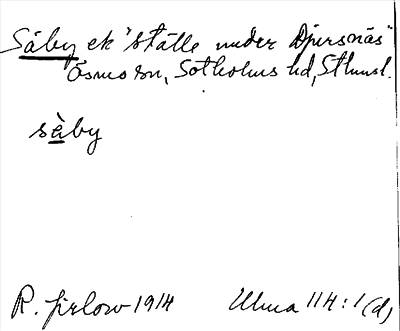 Säby ek "ställe under Djursnäs"
Ösmo sn, Sotholms hd, Sthmsl.
sàby
R. Jirlow 1914 Ulma 114:1 (d)